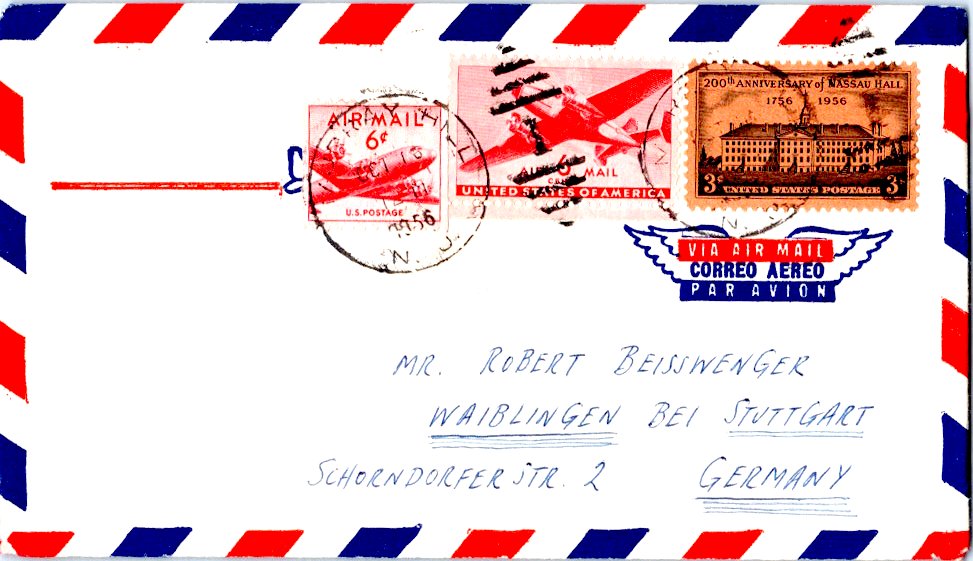 AIR MAIL
6¢
U.S. POSTAGE
OCT 16
1956
N. J.
6¢ AIR MAIL
UNITED STATES OF AMERICA
200th ANNIVERSARY of NASSAU HALL
1756 1956
3¢ UNITED STATES POSTAGE 3¢
VIA AIR MAIL
CORREO AEREO
PAR AVION
MR. ROBERT BEISSWENGER
WAIBLINGEN BEI STUTTGART
SCHORNDORFER STR. 2 GERMANY